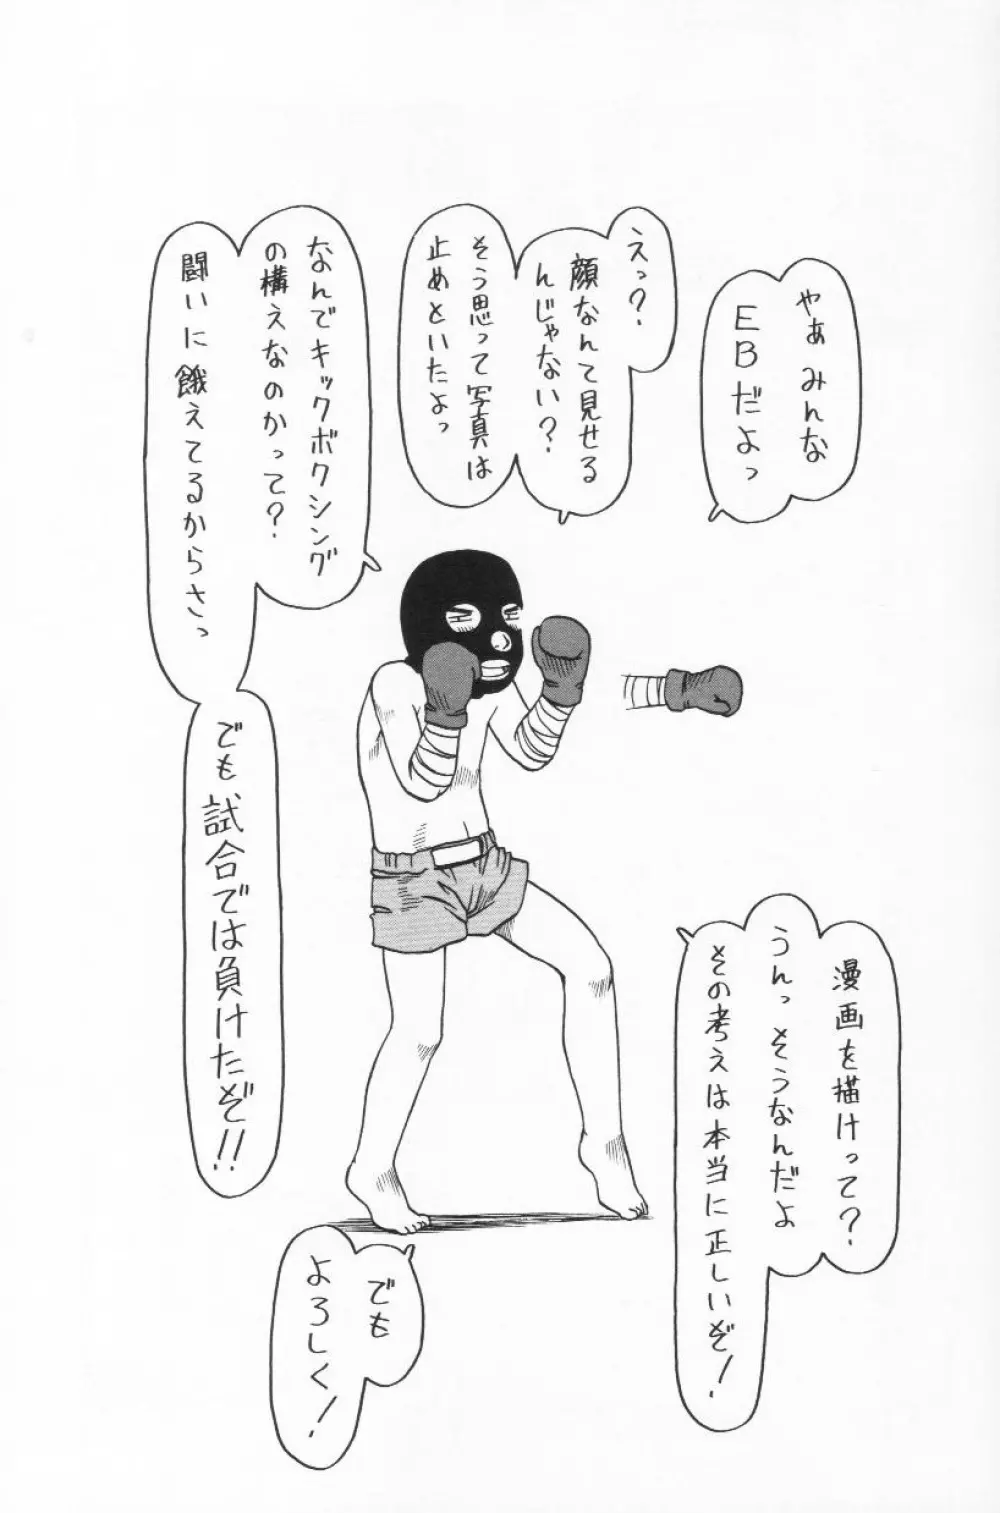 やぁみんな
EBだよっ
えっ?
顔なんて見せる
んじゃない?
そう思って写真は
止めといたよっ
なんでキックボクシング
の構えなのかって?
闘いに餓えてるからさっ
でも試合では負けたぞ!!
漫画を描けって?
うんっそうなんだよ
その考えは本当に正しいぞ!
でも
よろしく!